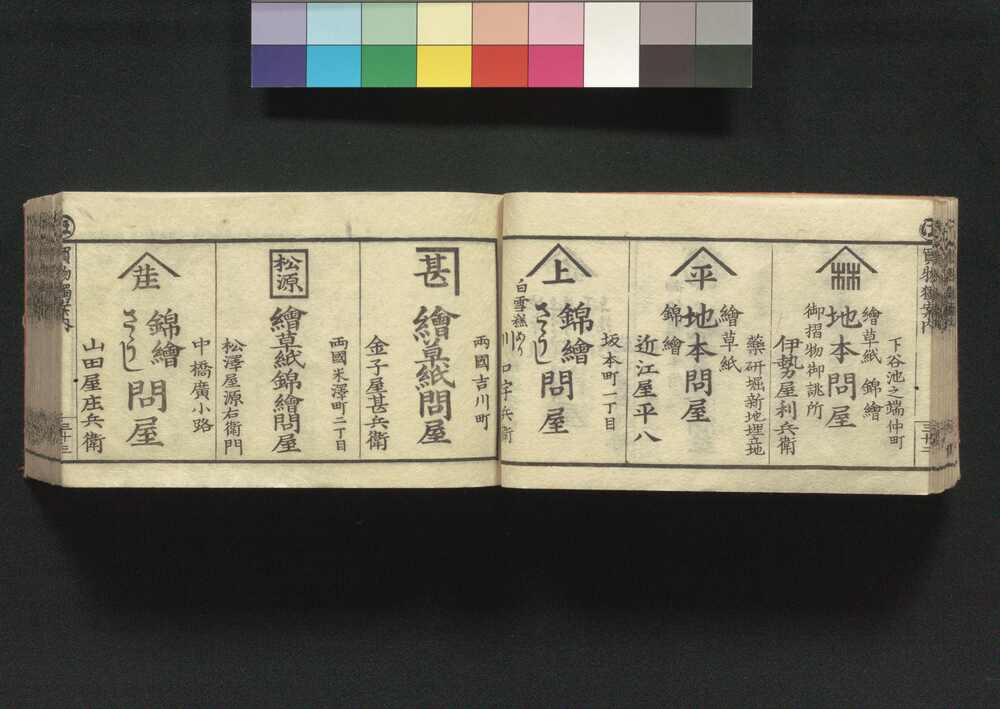 下谷池之端仲町
繪草紙 錦繪
地本問屋
御摺物御誂所
伊勢屋利兵衛
藥研堀新地埋立地
平
繪草紙
地本問屋
錦繪
近江屋平八
坂本町一丁目
上
錦繪
さらし
問屋
白雪糕あり
川口宇兵衛
両國吉川町
甚
繪草紙問屋
金子屋甚兵衛
両國米澤町二丁目
松源
繪草紙錦繪問屋
松澤屋源右衛門
中橋廣小路
庄
錦繪
さらし
問屋
山田屋庄兵衛
買物獨案内
三十三